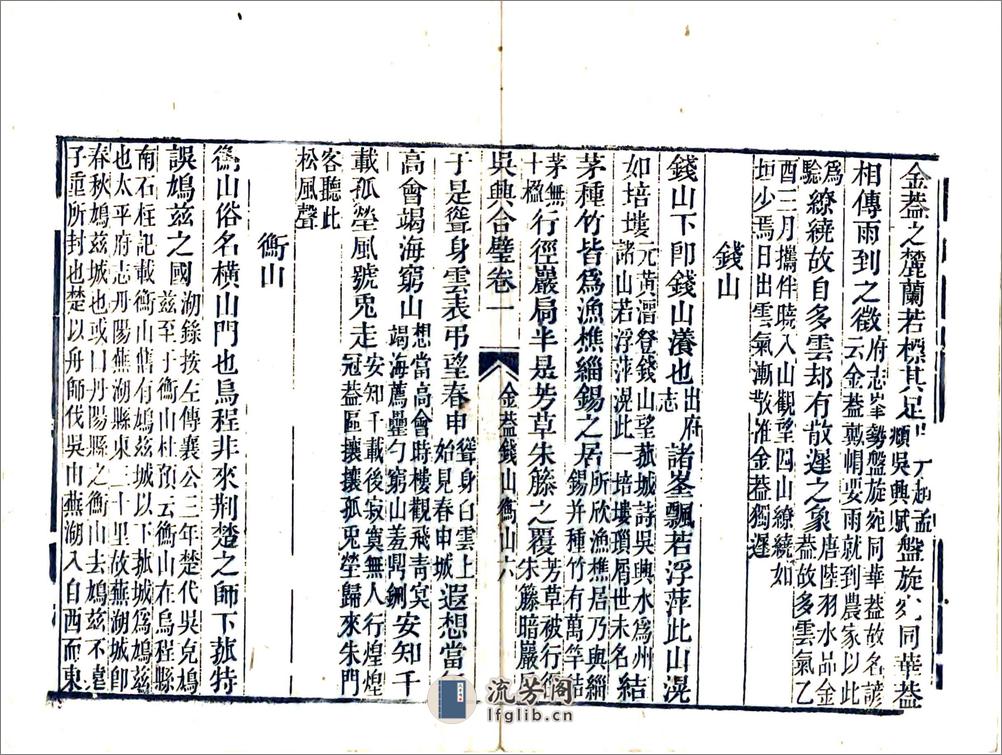 金葢之麓蘭若標其足
頫吳興賦
盤旋宛同華葢
相傳雨到之徵
府志峯勢盤旋宛同華葢故名諺
云金葢戴帽要雨就到農家以此
爲
驗
繚繞故自多雲却有散遲之象
唐陸羽水品金
葢故多雲氣乙
酉三月攜伴曉入山觀望四山繚繞如
垣少焉日出雲氣漸散准金葢獨遲
錢山
錢山下卽錢山漾也
出府
志
諸峯飄若浮萍此山滉
如培塿
元黃溍登錢山望菰城詩吳興水爲州
諸山若浮萍滉此一培塿瑣屑世未名
結
茅種竹皆爲漁樵緇錫之居
所欣漁樵居乃與緇
錫并種竹有萬竿結
茅無
十楹
行徑巖局半是芳草朱籐之覆
芳草被行徑
朱籐暗巖局
吳興合璧卷一
金葢錢山衡山
六
于是聳身雲表弔望春申
聳身白雲上
始見春申城
遐想當
高會竭海窮山
想當高會時樓觀飛青冥
竭海薦罍勺窮山羞鼎鉶
安知千
載孤塋風號兎走
安知千載後寂寞無人行煌煌
冠葢區攘攘孤兎塋歸來朱門
客聽此
松風聲
衡山
衡山俗名橫山門也烏程非來荆楚之師下菰特
誤鳩茲之國
湖錄按左傳襄公三年楚伐吳克鳩
茲至于衡山杜預云衡山在烏程縣
南石柱記載衡山舊有鳩茲城以下菰城爲鳩茲
也太平府志丹陽蕪湖縣東三十里故蕪湖城卽
春秋鳩茲城也或曰丹陽縣之衡山去鳩茲不遠
子重所封也楚以舟師伐吳山蕪湖入自西而東
流芳阁
lfglib.cn